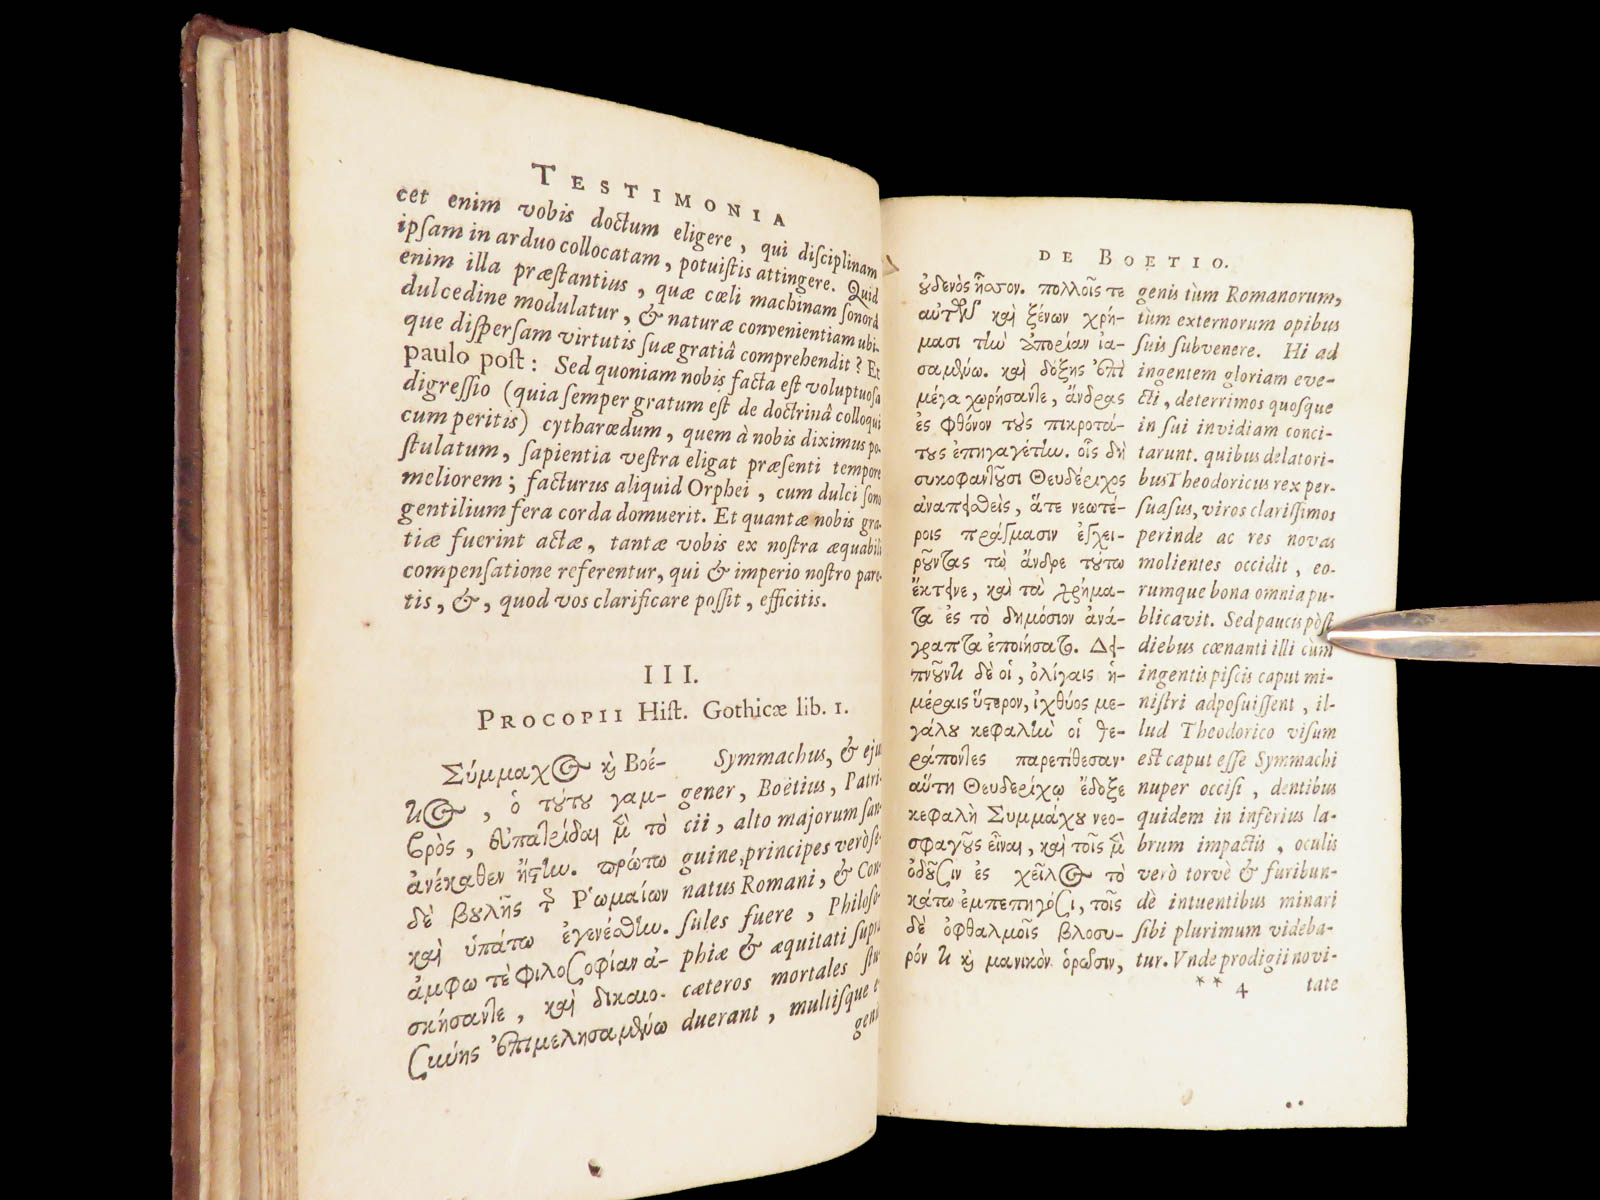 TESTIMONIA
cet enim vobis doctum eligere, qui disciplinam
ipsam in arduo collocatam, potuistis attingere. Quid
enim illa præstantius, quæ cœli machinam sonora
dulcedine modulatur, & naturæ convenientiam ubi-
que dispersam virtutis suæ gratiâ comprehendit? Et
paulo post: Sed quoniam nobis facta est voluptuosa
digressio (quia semper gratum est de doctrinâ colloqui
cum peritis) cytharœdum, quem à nobis diximus po-
stulatum, sapientia vestra eligat præsenti tempore
meliorem; facturus aliquid Orphei, cum dulci sono
gentilium fera corda domuerit. Et quantæ nobis gra-
tiæ fuerint actæ, tantæ vobis ex nostra æquabili
compensatione referentur, qui & imperio nostro pare-
tis, &, quod vos clarificare possit, efficitis.
III.
PROCOPII Hist. Gothicæ lib. 1.
Σύμμαχος καὶ Βοέ-
τιος, ὁ τούτου γαμ-
βρὸς, εὐπατρίδαι μὲν τὸ
ἀνέκαθεν ἤστην. πρώτω
δὲ βουλῆς τῆς Ῥωμαίων
καὶ ὑπάτω ἐγενέσθην.
ἄμφω τὲ φιλοσοφίαν ἀ-
σκήσαντε, καὶ δικαιο-
σύνης ἐπιμελησαμένω
Symmachus, & ejus
gener, Boëtius, Patri-
cii, alto majorum san-
guine, principes verò se-
natus Romani, & Con-
sules fuere, Philoso-
phiæ & æquitati supra
cæteros mortales stu-
duerant, multisque e-
geni
DE BOETIO.
οὐδενὸς ἧσσον. πολλοῖς τε
αὐτῶν καὶ ξένων χρή-
μασι τὴν ἀπορίαν ἰα-
σαμένω. καὶ δόξης ἐπὶ
μέγα χωρήσαντε, ἄνδρας
ἐς φθόνον τοὺς πικροτά-
τους ἐπηγαγέτην. οἷς δὴ
συκοφαντοῦσι Θευδέριχος
ἀναπεισθεὶς, ἅτε νεωτέ-
ροις πράγμασιν ἐγχει-
ροῦντας τὼ ἄνδρε τούτω
ἔκτεινε, καὶ τὰ χρήμα-
τα ἐς τὸ δημόσιον ἀνά-
γραπτα ἐποιήσατο. Δει-
πνοῦντι δὲ οἱ, ὀλίγαις ἡ-
μέραις ὕστερον, ἰχθύος με-
γάλου κεφαλὴν οἱ θε-
ράποντες παρετίθεσαν·
αὕτη Θευδερίχῳ ἔδοξε
κεφαλὴ Συμμάχου νεο-
σφαγοῦς εἶναι, καὶ τοῖς μὲν
ὀδοῦσιν ἐς χεῖλος τὸ
κάτω ἐμπεπηγόσι, τοῖς
δὲ ὀφθαλμοῖς βλοσυ-
ρόν τι καὶ μανικὸν ὁρῶσιν,
genis tùm Romanorum,
tùm externorum opibus
suis subvenere. Hi ad
ingentem gloriam eve-
cti, deterrimos quosque
in sui invidiam conci-
tarunt. quibus delatori-
bus Theodoricus rex per-
suasus, viros clarissimos
perinde ac res novas
molientes occidit, eo-
rumque bona omnia pu-
blicavit. Sed paucis pòst
diebus cœnanti illi cùm
ingentis piscis caput mi-
nistri adposuissent, il-
lud Theodorico visum
est caput esse Symmachi
nuper occisi, dentibus
quidem in inferius la-
brum impactis, oculis
verò torvè & furibun-
dè intuentibus minari
sibi plurimum videba-
tur. Unde prodigii novi-
** 4 tate